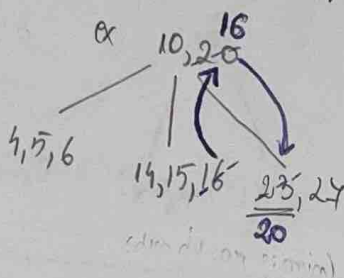 16
α 10, 20
4, 5, 6
14, 15, 16
25, 27
20